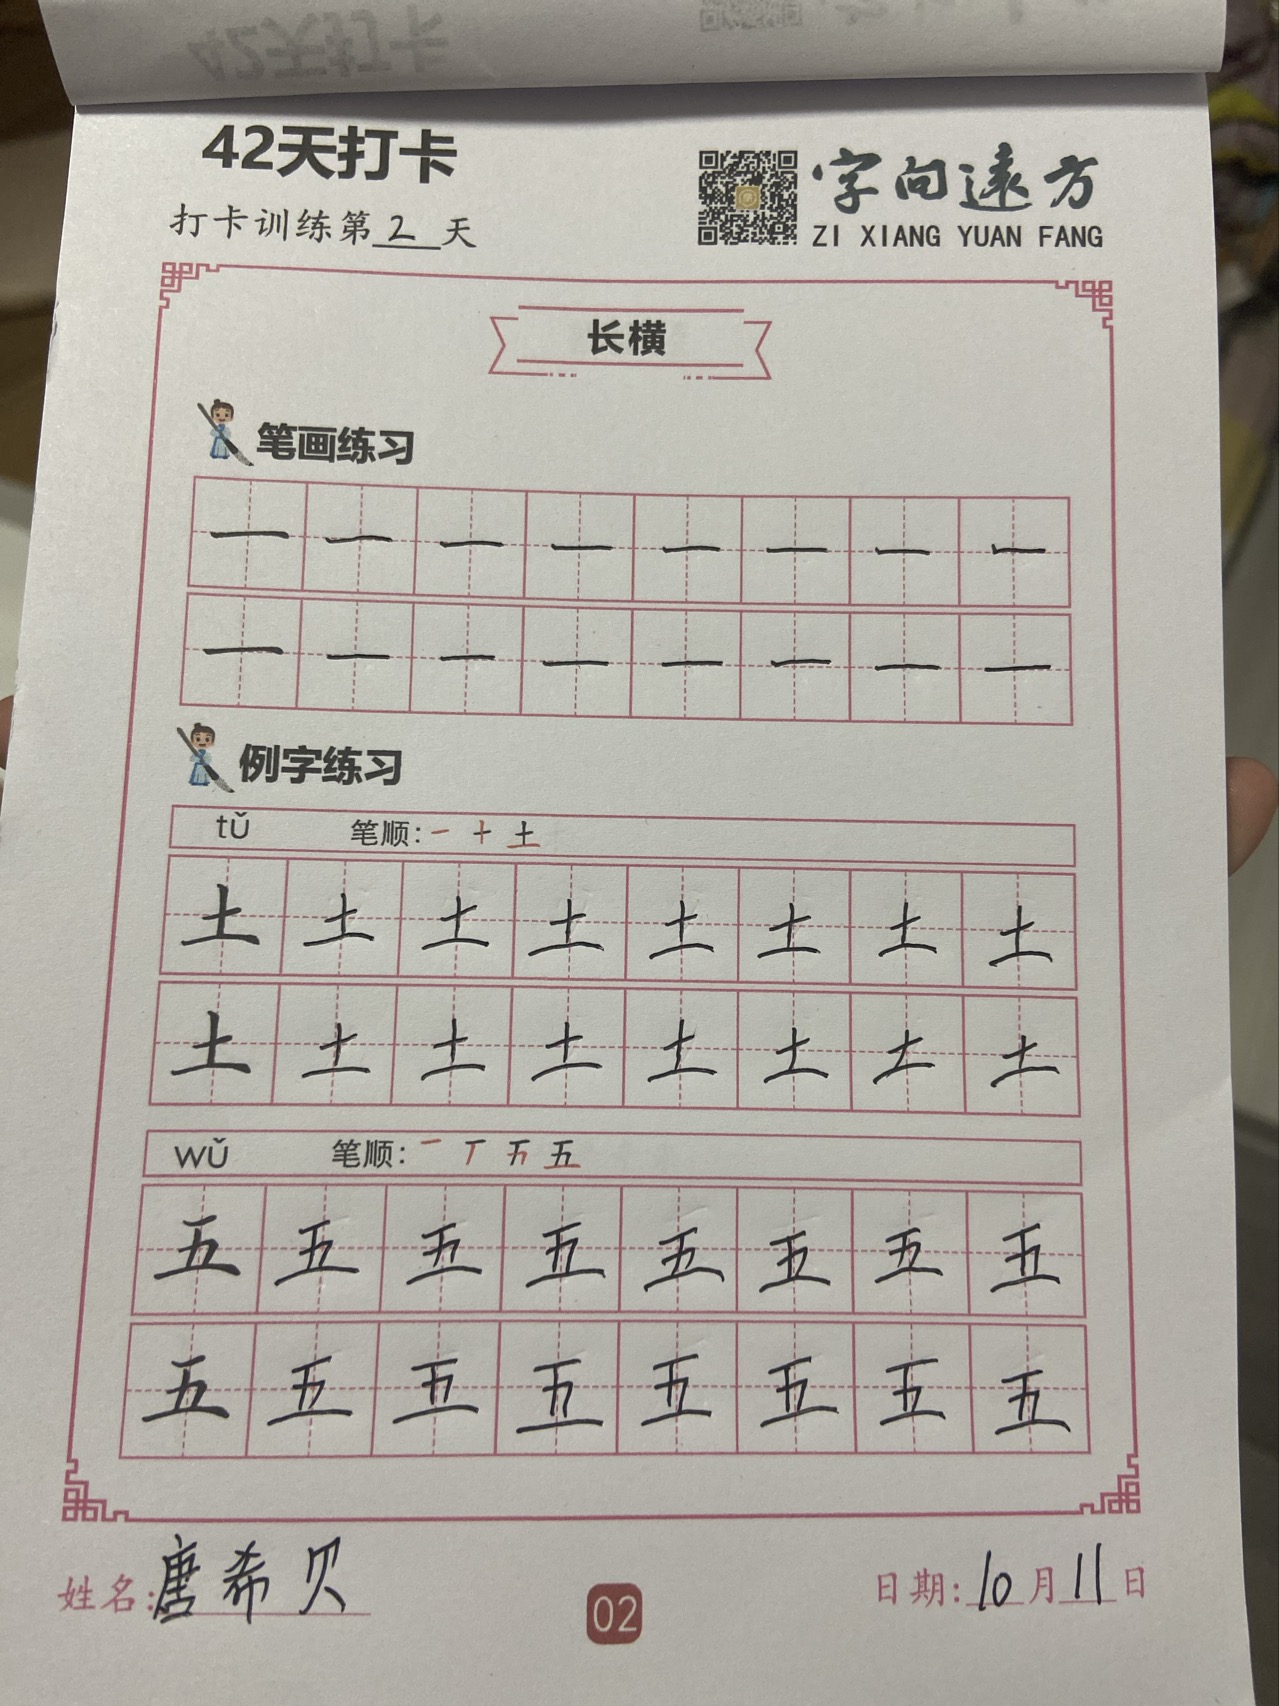 42天打卡
打卡训练第2天
字向远方
ZI XIANG YUAN FANG
长横
笔画练习
一 一 一 一 一 一 一 一
一 一 一 一 一 一 一 一
例字练习
tǔ 笔顺: 一 十 土
土 土 土 土 土 土 土 土
土 土 土 土 土 土 土 土
wǔ 笔顺: 一 丅 五 五
五 五 五 五 五 五 五 五
五 五 五 五 五 五 五 五
姓名: 唐希贝
02
日期: 10月11日